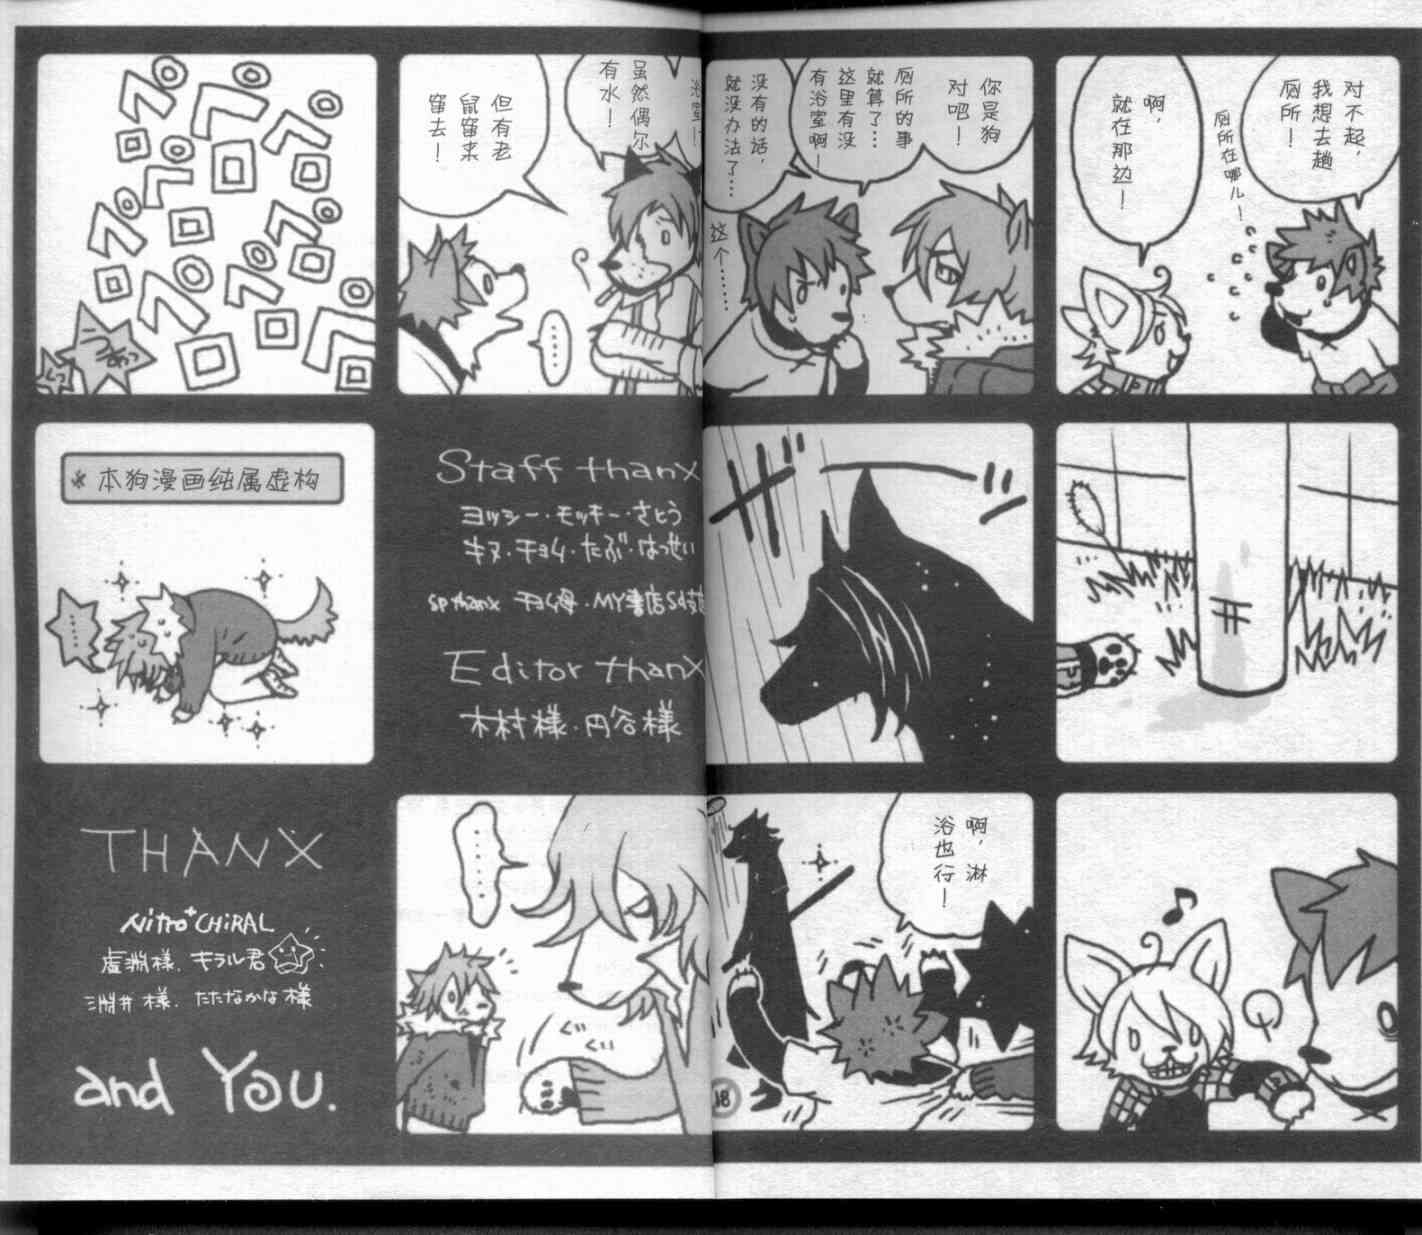 对不起，
我想去趟
厕所！
厕所在哪儿！
啊，
就在那边！
你是狗
对吧！
厕所的事
就算了…
这里有没
有浴室啊！
没有的话，
就没办法了…
这个………
浴室！
虽然偶尔
有水！
但有老
鼠窜来
窜去！
……
ザッ
啊，淋
浴也行！
18
……
ぐぃ
ぐぃ
Staff thanx
ヨッシー・モッキー・さとう
キヌ・チョム・たぶ・はっせい
sp thanx チョム母・MY書店
Editor thanx
木村様・円谷様
※本狗漫画纯属虚构
……
THANX
Nitro+CHiRAL
虚淵様、キラル君
淵井様、たたなかな様
and You.